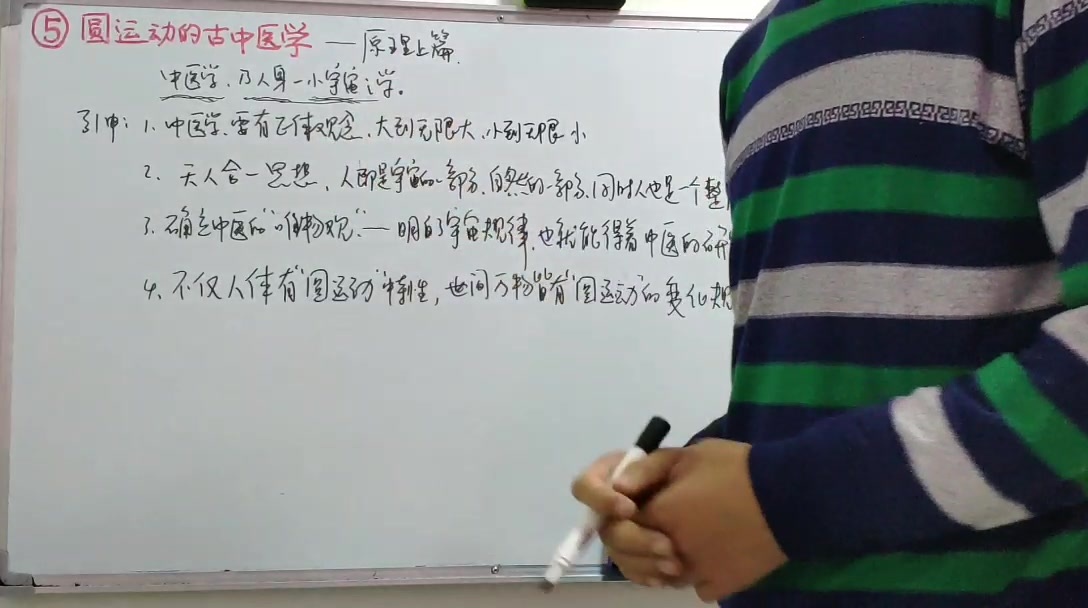 ⑤ 圆运动的古中医学 — 原理上篇.
中医学，乃人身一小宇宙之学。
引申: 1. 中医学需有整体观念，大到无限大，小到无限小
2. 天人合一思想，人即是宇宙的一部分、自然的一部分，同时人也是一个整
3. 确立中医的“唯物观”— 明白了宇宙规律，也就能得着中医的研
4. 不仅人体有“圆运动”特性，世间万物皆有“圆运动”的变化规